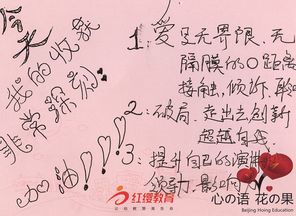 今天
我的收获
非常深刻
加油!!!
1:爱是无界限,无
隔膜的0距离
接触,倾诉,聆
2:破局,走出去创新
超越自
3:提升自己的演
领导,影响力
红缨教育
心の语 花の果
Beijing Hoing Education